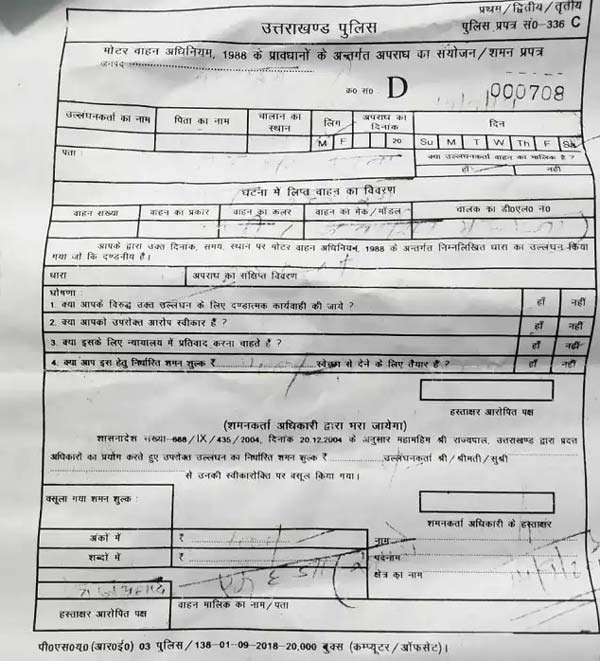 प्रथम/द्वितीय/तृतीय
उत्तराखण्ड पुलिस
पुलिस प्रपत्र सं0-336 C
मोटर वाहन अधिनियम, 1988 के प्रावधानों के अन्तर्गत अपराध का संयोजन/शमन प्रपत्र
जनपद
क्र0 सं0 D 000708
उल्लंघनकर्ता का नाम पिता का नाम चालान का स्थान लिंग अपराध का दिनांक दिन
M F 20 Su M T W Th F Sa
पता : क्या उल्लंघनकर्ता वाहन का मालिक है ?
हाँ नहीं
घटना में लिप्त वाहन का विवरण
वाहन संख्या वाहन का प्रकार वाहन का कलर वाहन का मेक/मॉडल चालक का डी0एल0 नं0
आपके द्वारा उक्त दिनांक, समय, स्थान पर मोटर वाहन अधिनियम, 1988 के अन्तर्गत निम्नलिखित धारा का उल्लंघन किया
गया जो कि दण्डनीय है।
धारा अपराध का संक्षिप्त विवरण
घोषणा :
1. क्या आपके विरुद्ध उक्त उल्लंघन के लिए दण्डात्मक कार्यवाही की जाये ? हाँ नहीं
2. क्या आपको उपरोक्त आरोप स्वीकार है ? हाँ नहीं
3. क्या इसके लिए न्यायालय में प्रतिवाद करना चाहते है ? हाँ नहीं
4. क्या आप इस हेतु निर्धारित शमन शुल्क ₹ स्वेच्छा से देने के लिए तैयार है ? हाँ नहीं
हस्ताक्षर आरोपित पक्ष
(शमनकर्ता अधिकारी द्वारा भरा जायेगा)
शासनादेश संख्या-668/IX/435/2004, दिनांक 20.12.2004 के अनुसार महामहिम श्री राज्यपाल, उत्तराखण्ड द्वारा प्रदत्त
अधिकारों का प्रयोग करते हुए उपरोक्त उल्लंघन का निर्धारित शमन शुल्क ₹ उल्लंघनकर्ता श्री/श्रीमती/सुश्री
से उनकी स्वीकारोक्ति पर वसूल किया गया।
वसूला गया शमन शुल्क :
शमनकर्ता अधिकारी के हस्ताक्षर
अंकों में ₹ नाम
शब्दों में ₹ पदनाम
क्षेत्र का नाम
हस्ताक्षर आरोपित पक्ष वाहन मालिक का नाम/पता
पी0एस0यू0(आर0ई0) 03 पुलिस/138-01-09-2018-20,000 बुक्स (कम्प्यूटर/ऑफसेट)।